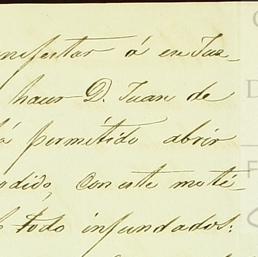 nifestar á en Juz-
hacer D. Juan de
á permitido abrir
ndido, con este moti-
todo infundados: